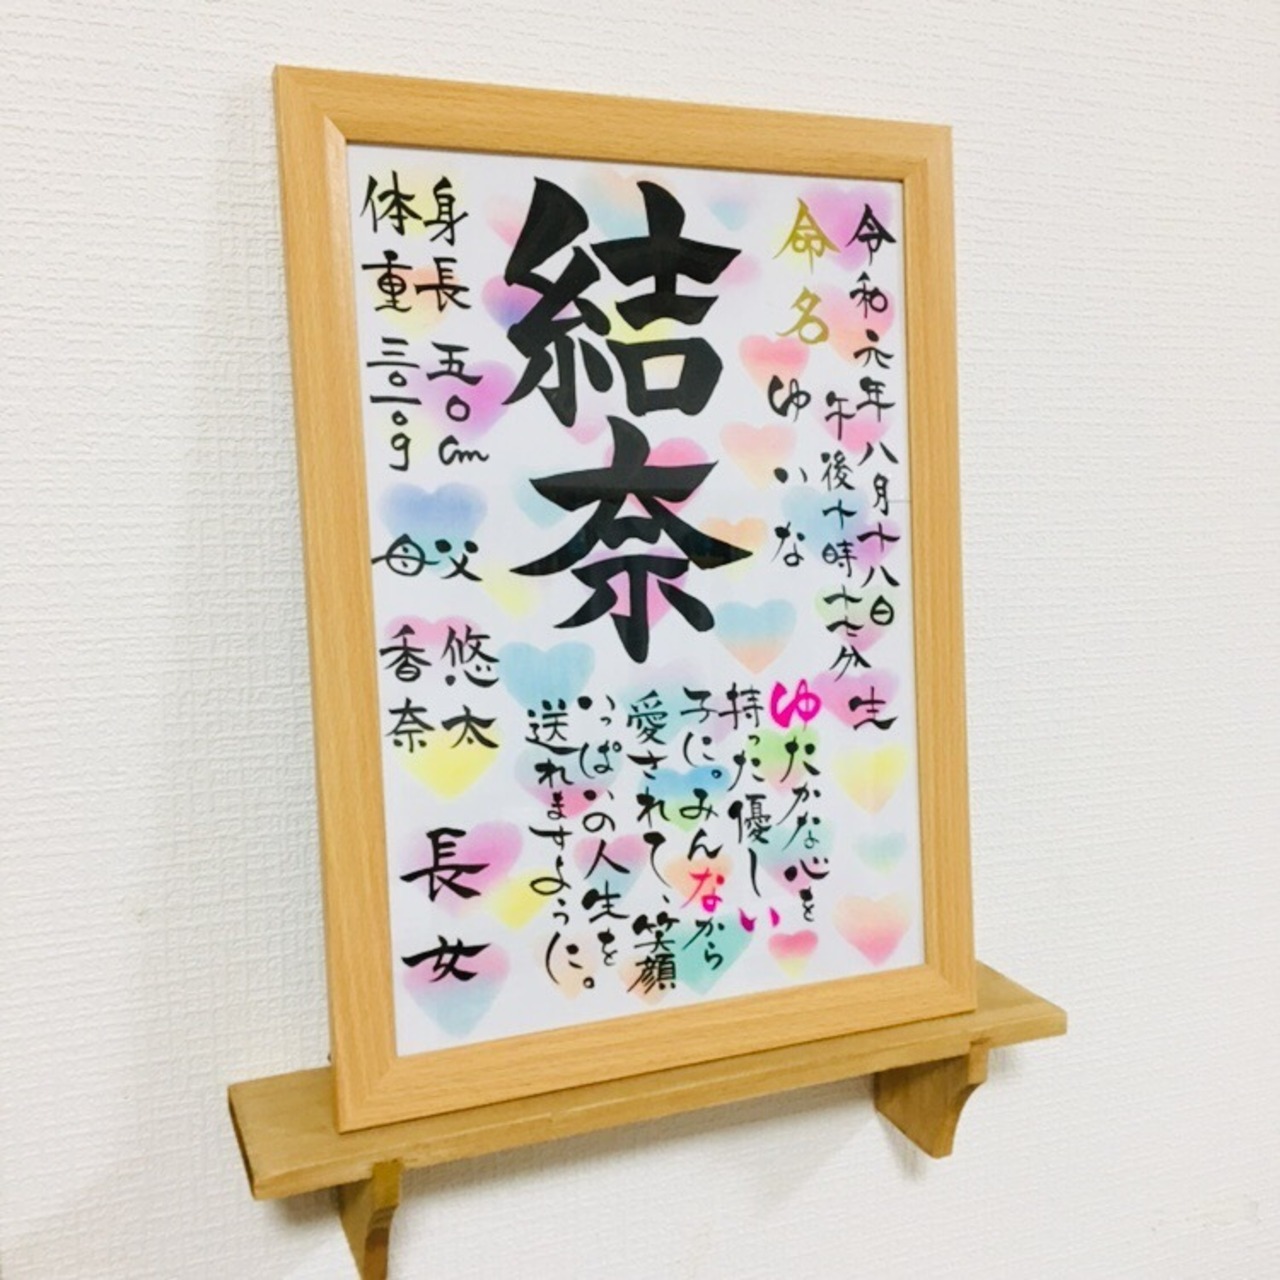 令和元年八月十八日生
午後十時十七分
命名 ゆいな
結奈
ゆたかな心を
持った優しい
子に。みんなから
愛されて、笑顔
いっぱいの人生を
送れますように。
身長 五〇cm
体重 三〇一〇g
父 悠太
母 香奈
長女